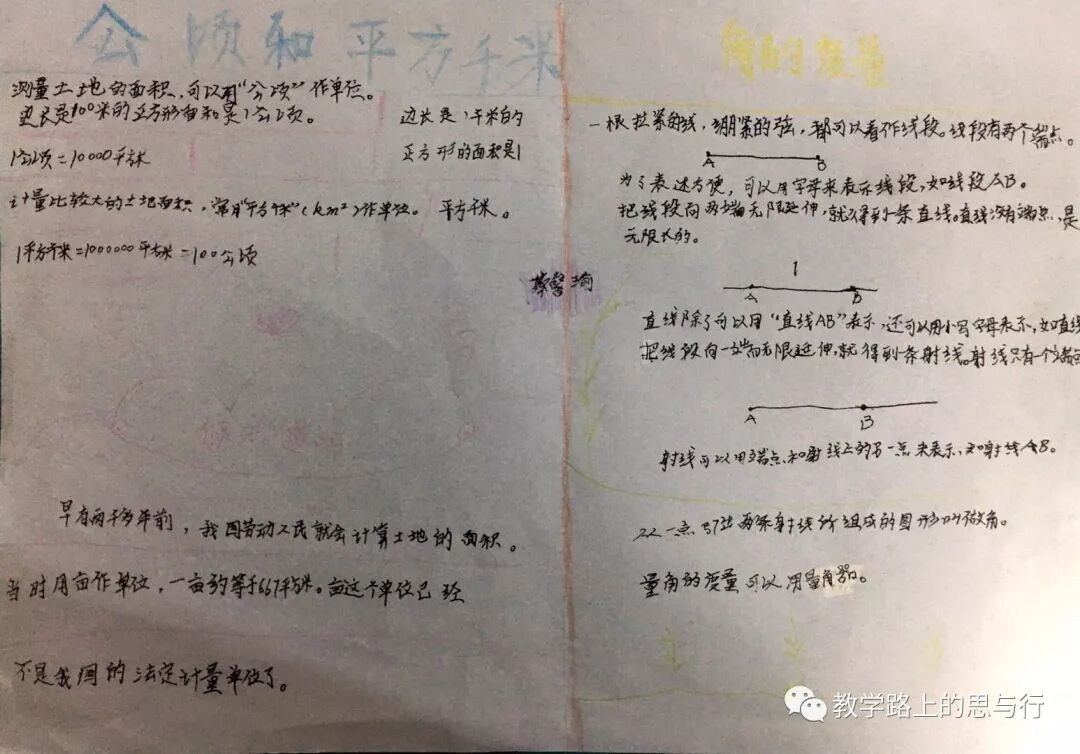 公顷和平方千米
测量土地的面积，可以用“公顷”作单位。
边长是100米的正方形面积是1公顷。
1公顷=10000平方米
边长是1千米的
正方形的面积是1
平方千米。
计量比较大的土地面积，常用“平方千米”(km²)作单位。
1平方千米=1000000平方米=100公顷
早在两千多年前，我国劳动人民就会计算土地的面积。
当时用亩作单位，一亩约等于667平方米。亩这个单位已经
不是我国的法定计量单位了。
角的度量
一根拉紧的线，绷紧的弦，都可以看作线段。线段有两个端点。
A B
为了表述方便，可以用字母来表示线段，如线段AB。
把线段向两端无限延伸，就得到一条直线。直线没有端点，是
无限长的。
l
A B
直线除了可以用“直线AB”表示，还可以用小写字母表示，如直线
把线段向一端无限延伸，就得到条射线。射线只有一个端点
A B
射线可以用端点和射线上的另一点来表示，如射线AB。
从一点引出两条射线所组成的图形叫做角。
量角的度量可以用量角器。
教学路上的思与行